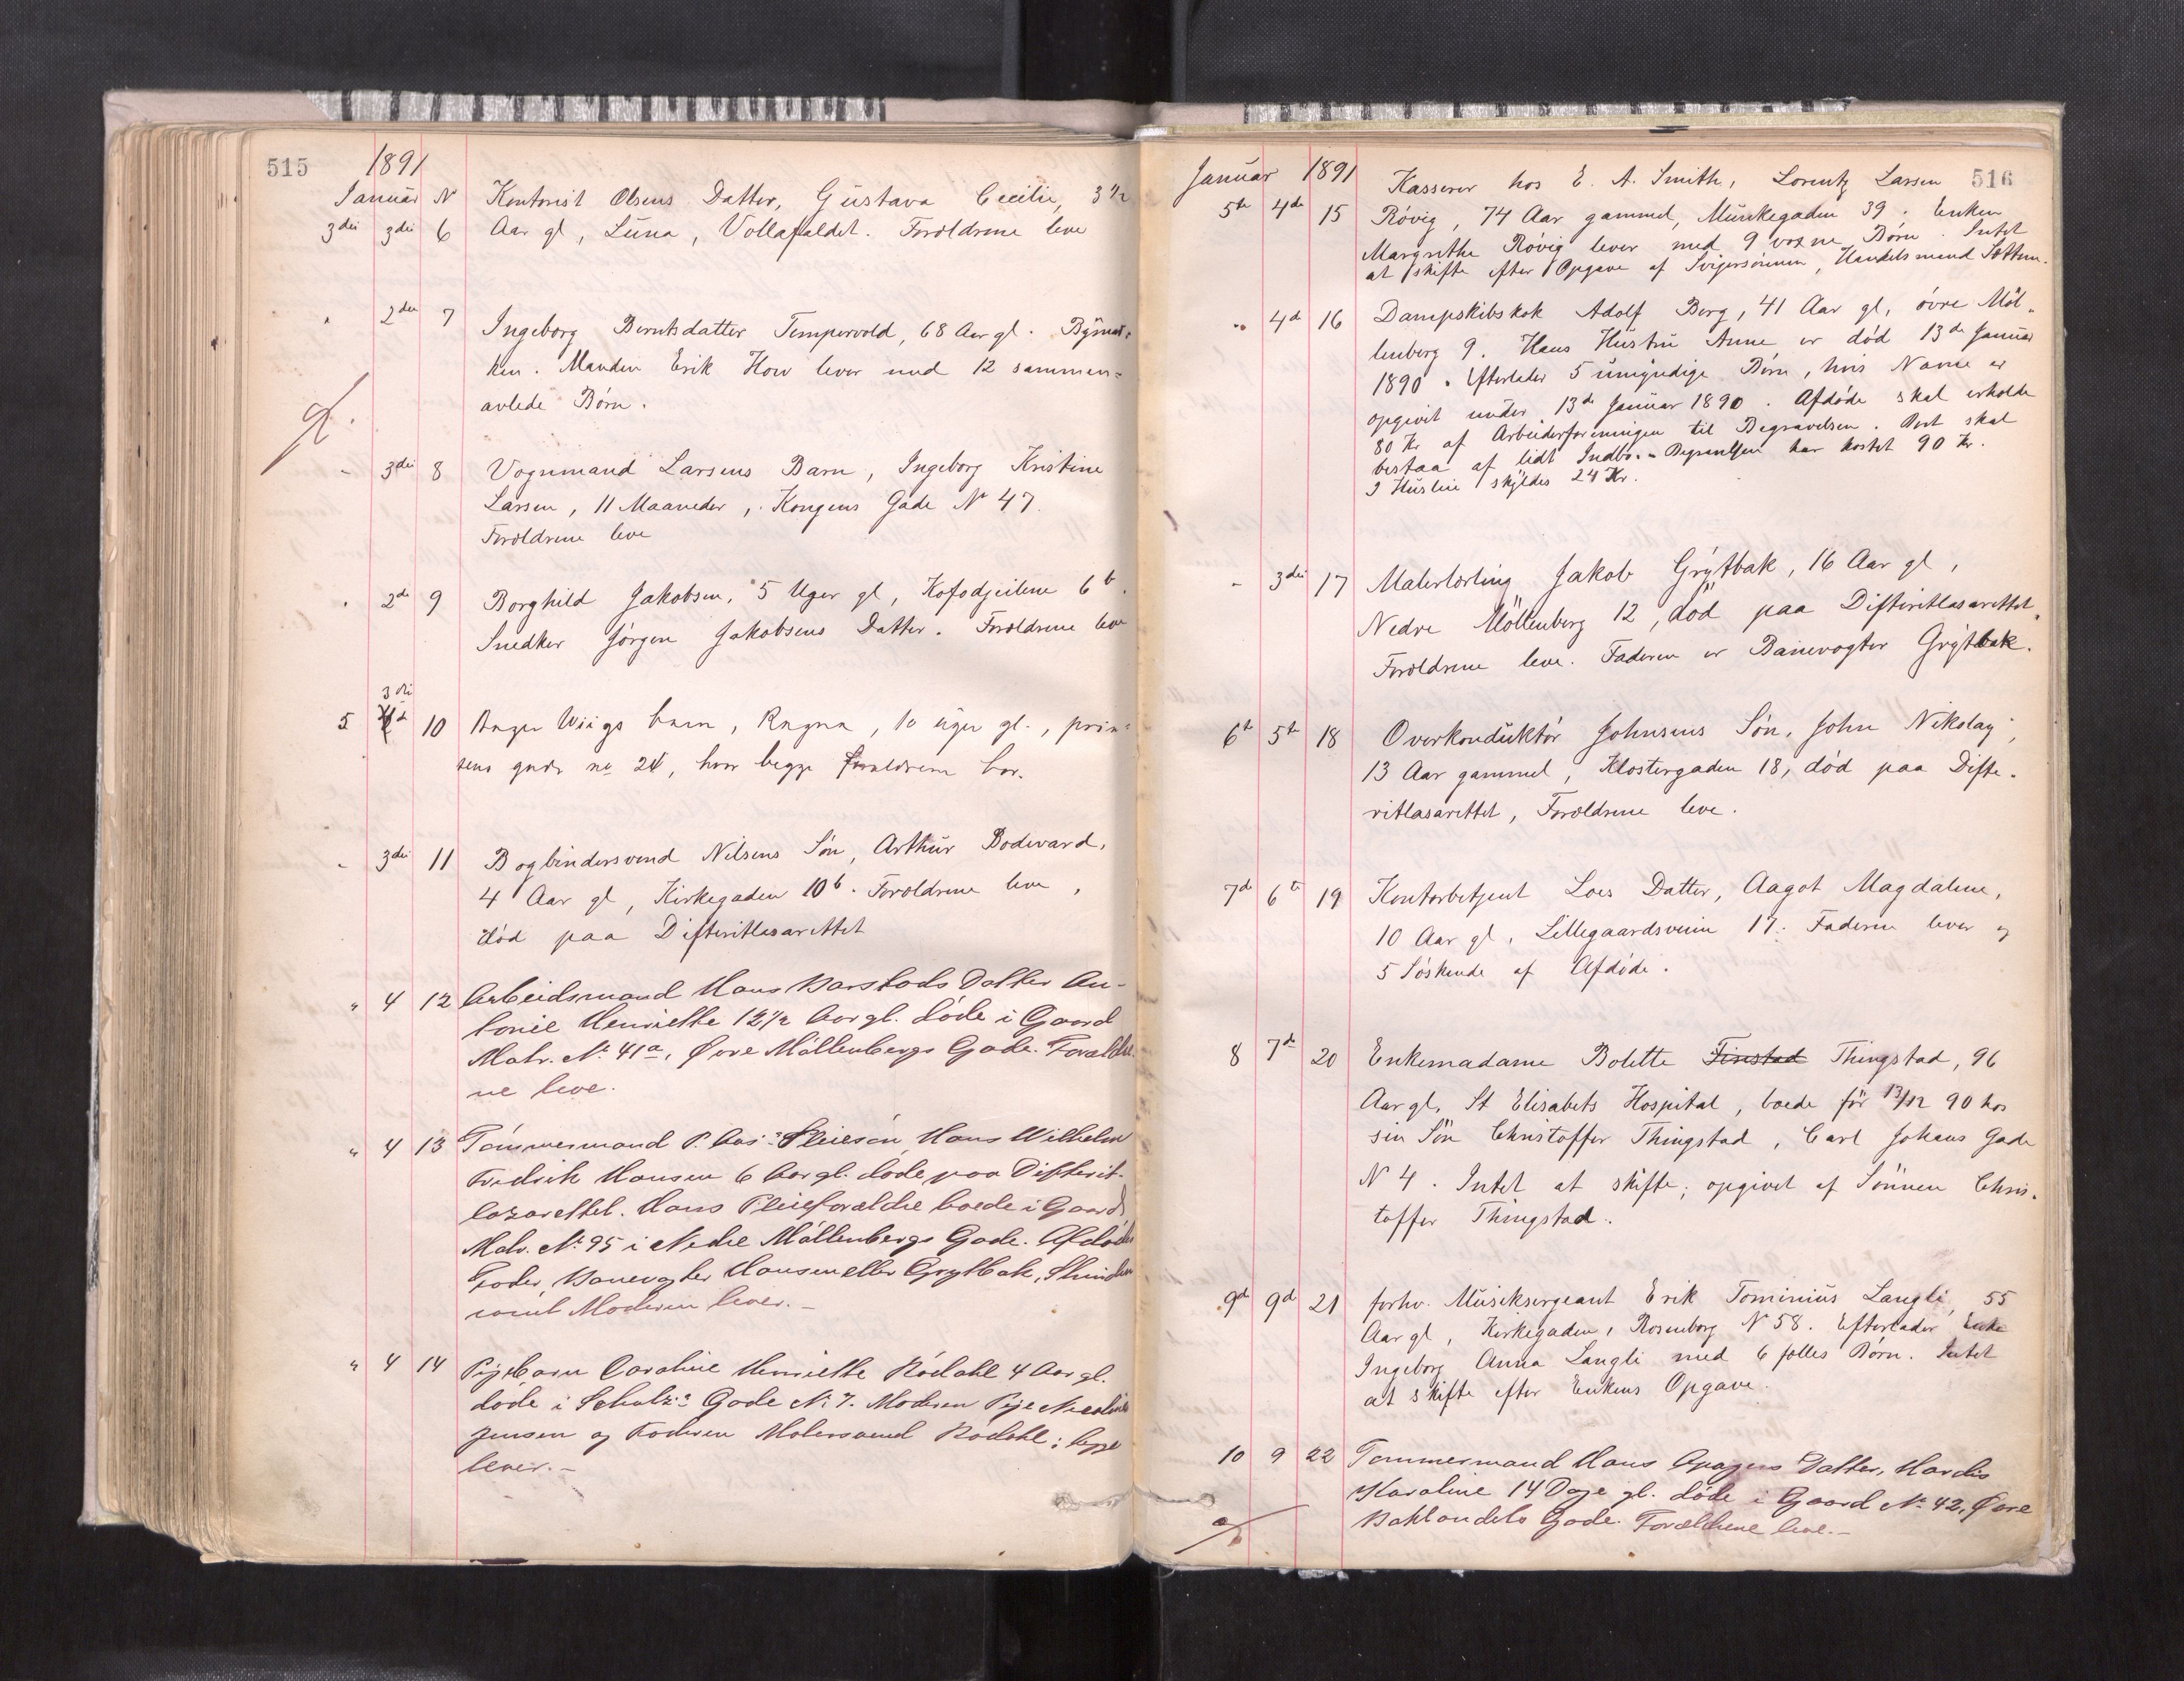 515
1891
Januar N Kontorist Olsens Datter, Gustava Cecilie, 3 1/2
3die 3die 6 Aar gl, Luna, Vollafaldet. Forældrene leve
" 2den 7 Ingeborg Berntsdatter Tempervold, 68 Aar gl. Bymar-
ken. Manden Erik How lever med 12 sammen=
avlede Børn.
- 3die 8 Vognmand Larsens Barn, Ingeborg Kristine
Larsen, 11 Maaneder, Kongens Gade N 47.
Forældrene leve
" 2de 9 Borghild Jakobsen, 5 Uger gl, Kofodgeilene 6b.
Snedker Jørgen Jakobsens Datter. Forældrene leve
3die
5 10 Wiigs barn, Ragna, 10 uger gl., prin=
sens gade no 24, hvor begge forældrene bor.
- 3die 11 Bogbindersvend Nilsens Søn, Arthur Bodevard,
4 Aar gl, Kirkegaden 10b. Forældrene leve,
død paa Difteritlasarettet
" 4 12 Arbeidsmand Hans Barstads Datter An-
tonie Henriette 12 1/2 Aar gl. døde i Gaard
Matr. No 41a, Øvre Møllenbergs Gade. Forældre-
ne leve.
" 4 13 Tømmermand P. Aas's Pleiesøn, Hans Wilhelm
Fredrik Hansen 6 Aar gl. døde paa Difterit-
lazarettet. Hans Pleieforældre boede i Gaard
Matr. No 95 i Nedre Møllenbergs Gade. Afdødes
Fader, Banevogter Hansen eller Grytbak,
samt Moderen lever.-
" 4 14 Pigebarn Caroline Henriette Rödahl 4 Aar gl.
døde i Schultz's Gade No 7. Moderen Pige Nicoline
Jensen og Faderen Malersvend Rødahl; begge
lever.-
Januar 1891 516
Kasserer hos E. A. Smith, Lorentz Larsen
5te 4de 15 Røvig, 74 Aar gammel, Munkegaden 39. Enken
Margrethe Røvig lever med 9 voxne Børn. Intet
at skifte efter Opgave af Svigersønnen, Handelsmand
" 4d 16 Dampskibskok Adolf Berg, 41 Aar gl, øvre Møl-
lenberg 9. Hans Hustru Anne er død 13de Januar
1890. Efterlader 5 umyndige Børn, hvis Navne er
opgivet under 13de Januar 1890. Afdøde skal erholde
80 Kr af Arbeiderforeningen til Begravelsen. Boet skal
bestaa af lidt Indbo. - Begravelsen har kostet 90 Kr.
I Husleie skyldes 24 Kr.
- 3die 17 Malerlærling Jakob Grytbak, 16 Aar gl,
Nedre Möllenberg 12, död paa Difteritlasarettet.
Forældrene leve. Faderen er Banevogter Grytbak.
6te 5te 18 Overkonduktør Johnsens Søn, John Nikolay,
13 Aar gammel, Klostergaden 18, død paa Difte-
ritlasarettet, Forældrene leve.
7de 6te 19 Kontorbetjent Loes Datter, Aagot Magdalene,
10 Aar gl, Lillegaardsveien 17. Faderen lever og
5 Søskende af Afdøde.
8 7de 20 Enkemadame Bolette Finstad Thingstad, 96
Aar gl, St Elisabets Hospital, boede før 13/12 90 hos
sin Søn Christoffer Thingstad, Carl Johans Gade
N 4. Intet at skifte; opgivet af Sönnen Chris-
toffer Thingstad.
9d 9d 21 forhv. Musiksergeant Erik Tominius Langli, 55
Aar gl, Kirkegaden, Rosenborg N 58. Efterlader Enke
Ingeborg Anna Langli med 6 fælles Børn. Intet
at skifte efter Enkens Opgave.
10 9 22 Tømmermand Hans Datter, Hardis
Karoline 14 Dage gl. døde i Gaard No 42, Øvre
Baklandets Gade. Forældrene leve.-